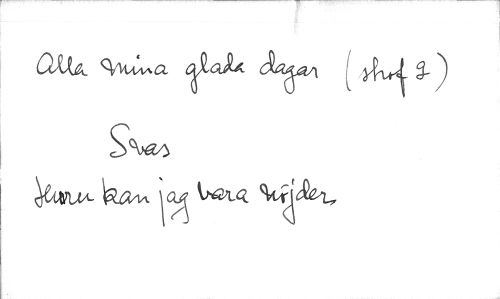 Alla mina glada dagar (strof 2)
Svas
Huru kan jag vara nöjder